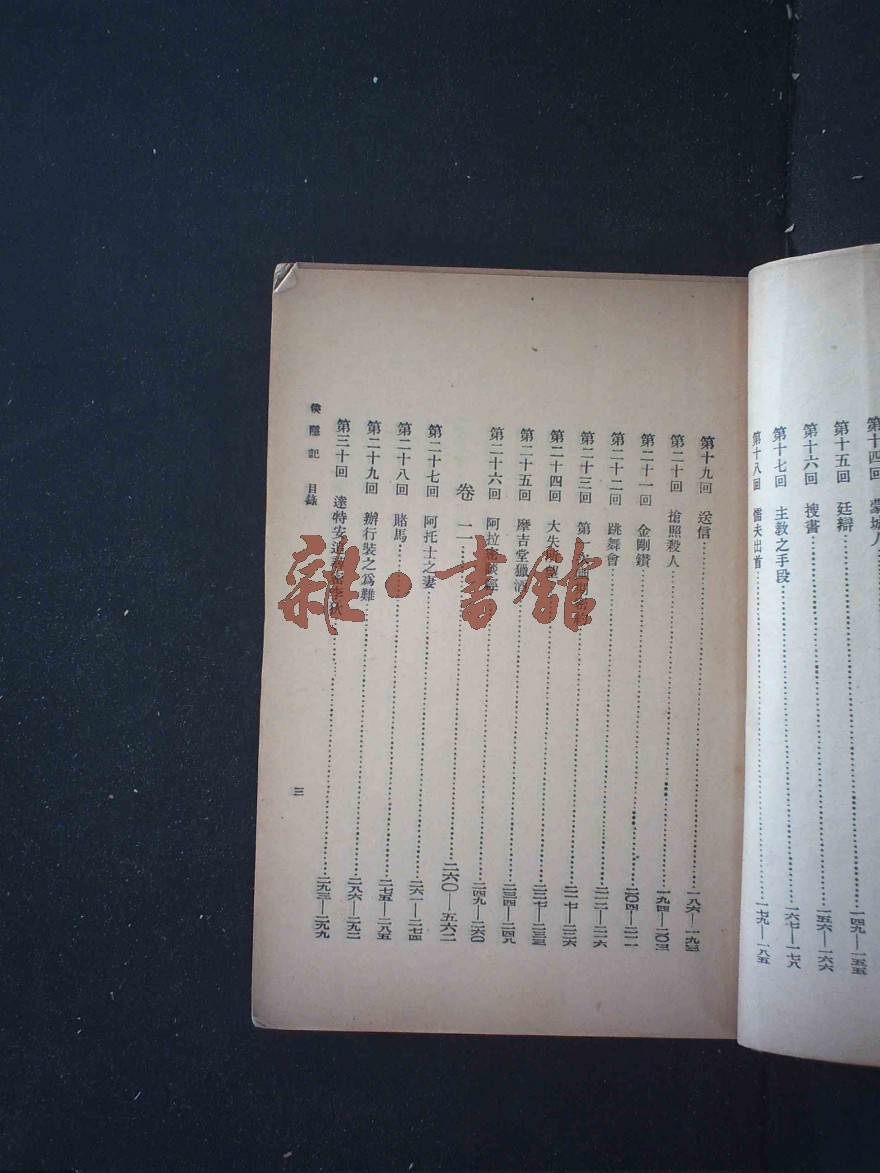 第十四回 蒙城人
第十五回 廷辯……一四九—一五五
第十六回 搜書……一五六—一六六
第十七回 主教之手段……一六七—一七八
第十八回 儒夫出首……一七九—一八五
第十九回 送信……一八六—一九三
第二十回 搶照殺人……一九四—二〇三
第二十一回 金剛鑽……二〇四—二一一
第二十二回 跳舞會……二一二—二一六
第二十三回 第二次幽期密約……二一七—二二六
第二十四回 大失所望……二二七—二三三
第二十五回 摩吉堂獵酒……二三四—二四八
第二十六回 阿拉密談經……二四九—二六〇
卷二……二六〇—五六二
第二十七回 阿托士之妻……二六一—二七四
第二十八回 賭馬……二七五—二八五
第二十九回 辦行裝之爲難……二八六—二九二
第三十回 達特安追尋密李狄……二九三—二九九
俠隱記 目錄
三
雜·書館